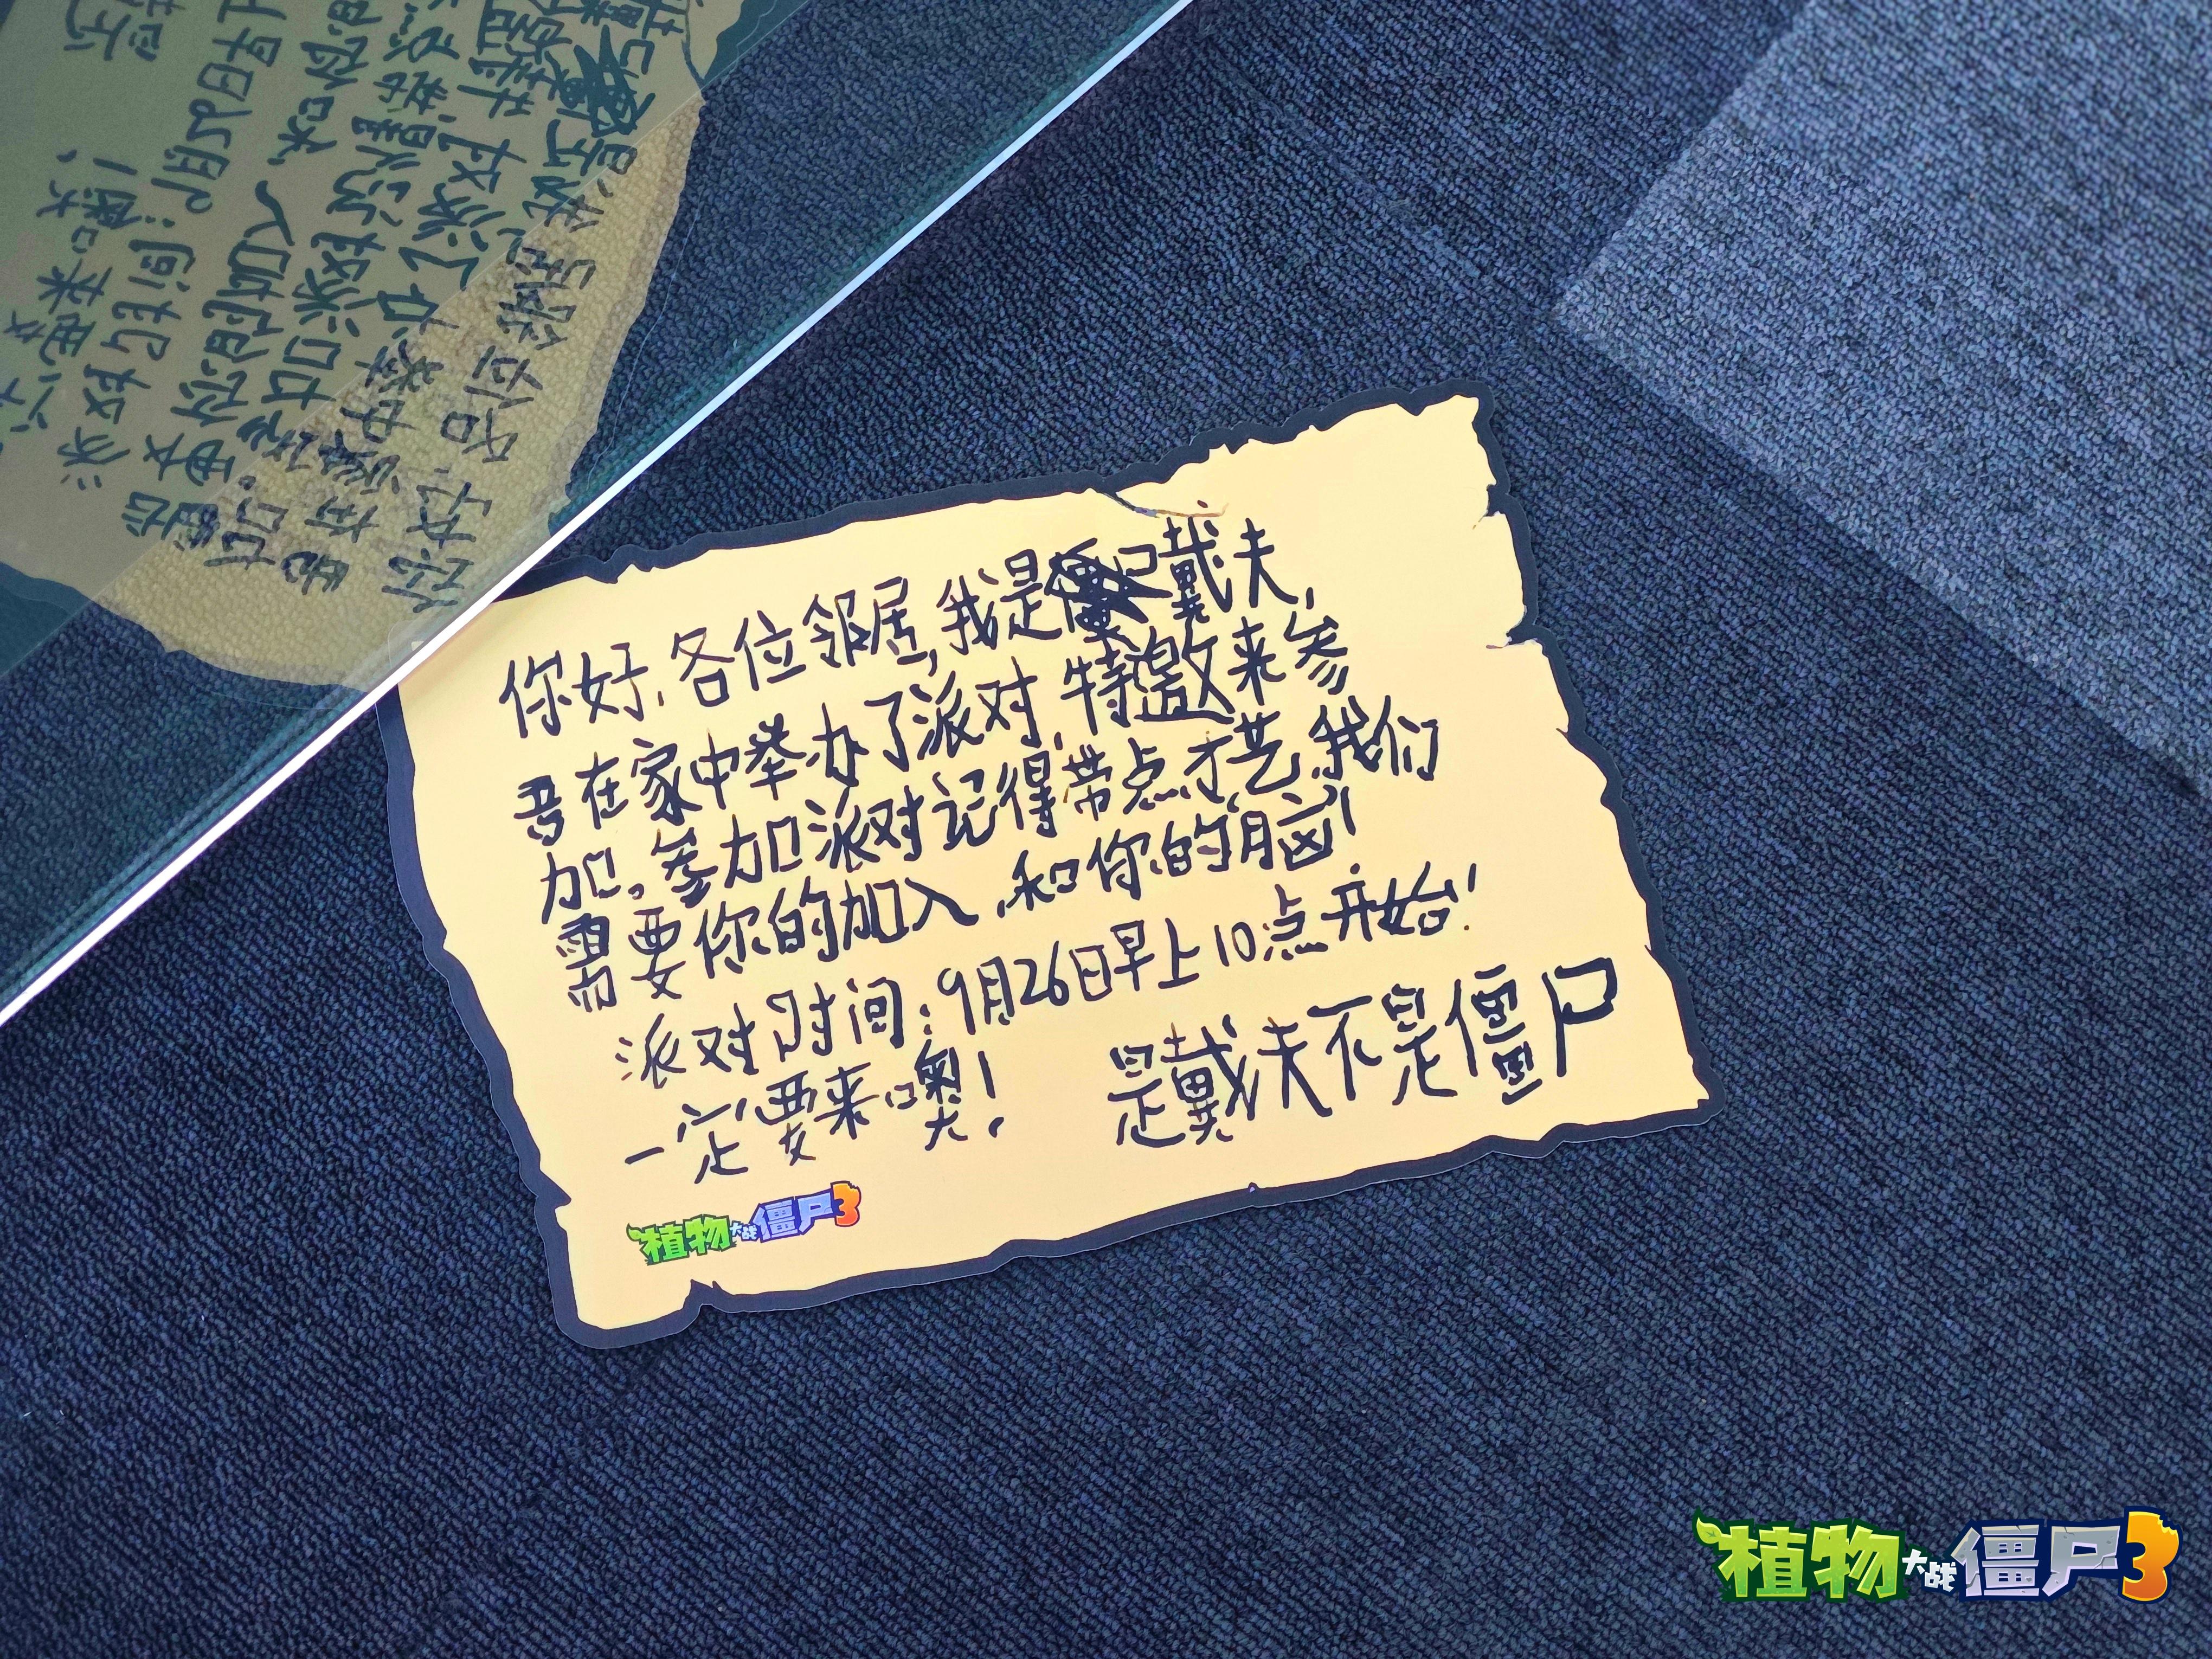 你好，各位邻居，我是戴夫，
吾在家中举办了派对，特邀来参
加。参加派对记得带点才艺，我们
需要你的加入，和你的脑！
派对时间：9月26日早上10点开始！
一定要来噢！
是戴夫不是僵尸
植物大战僵尸3
植物大战僵尸3